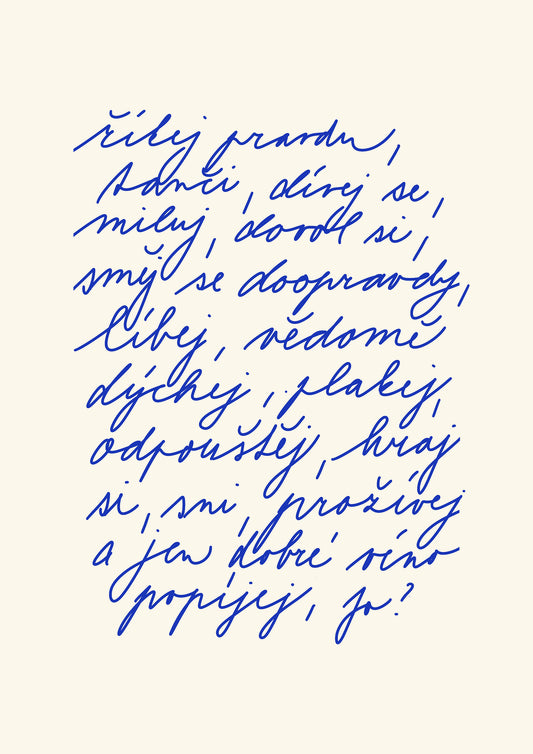 říkej pravdu,
tanči, dívej se,
miluj, dovol si,
směj se doopravdy,
líbej, vědomě
dýchej, plakej,
odpouštěj, hraj
si, sni, prožívej
a jen dobré víno
popíjej, jo?